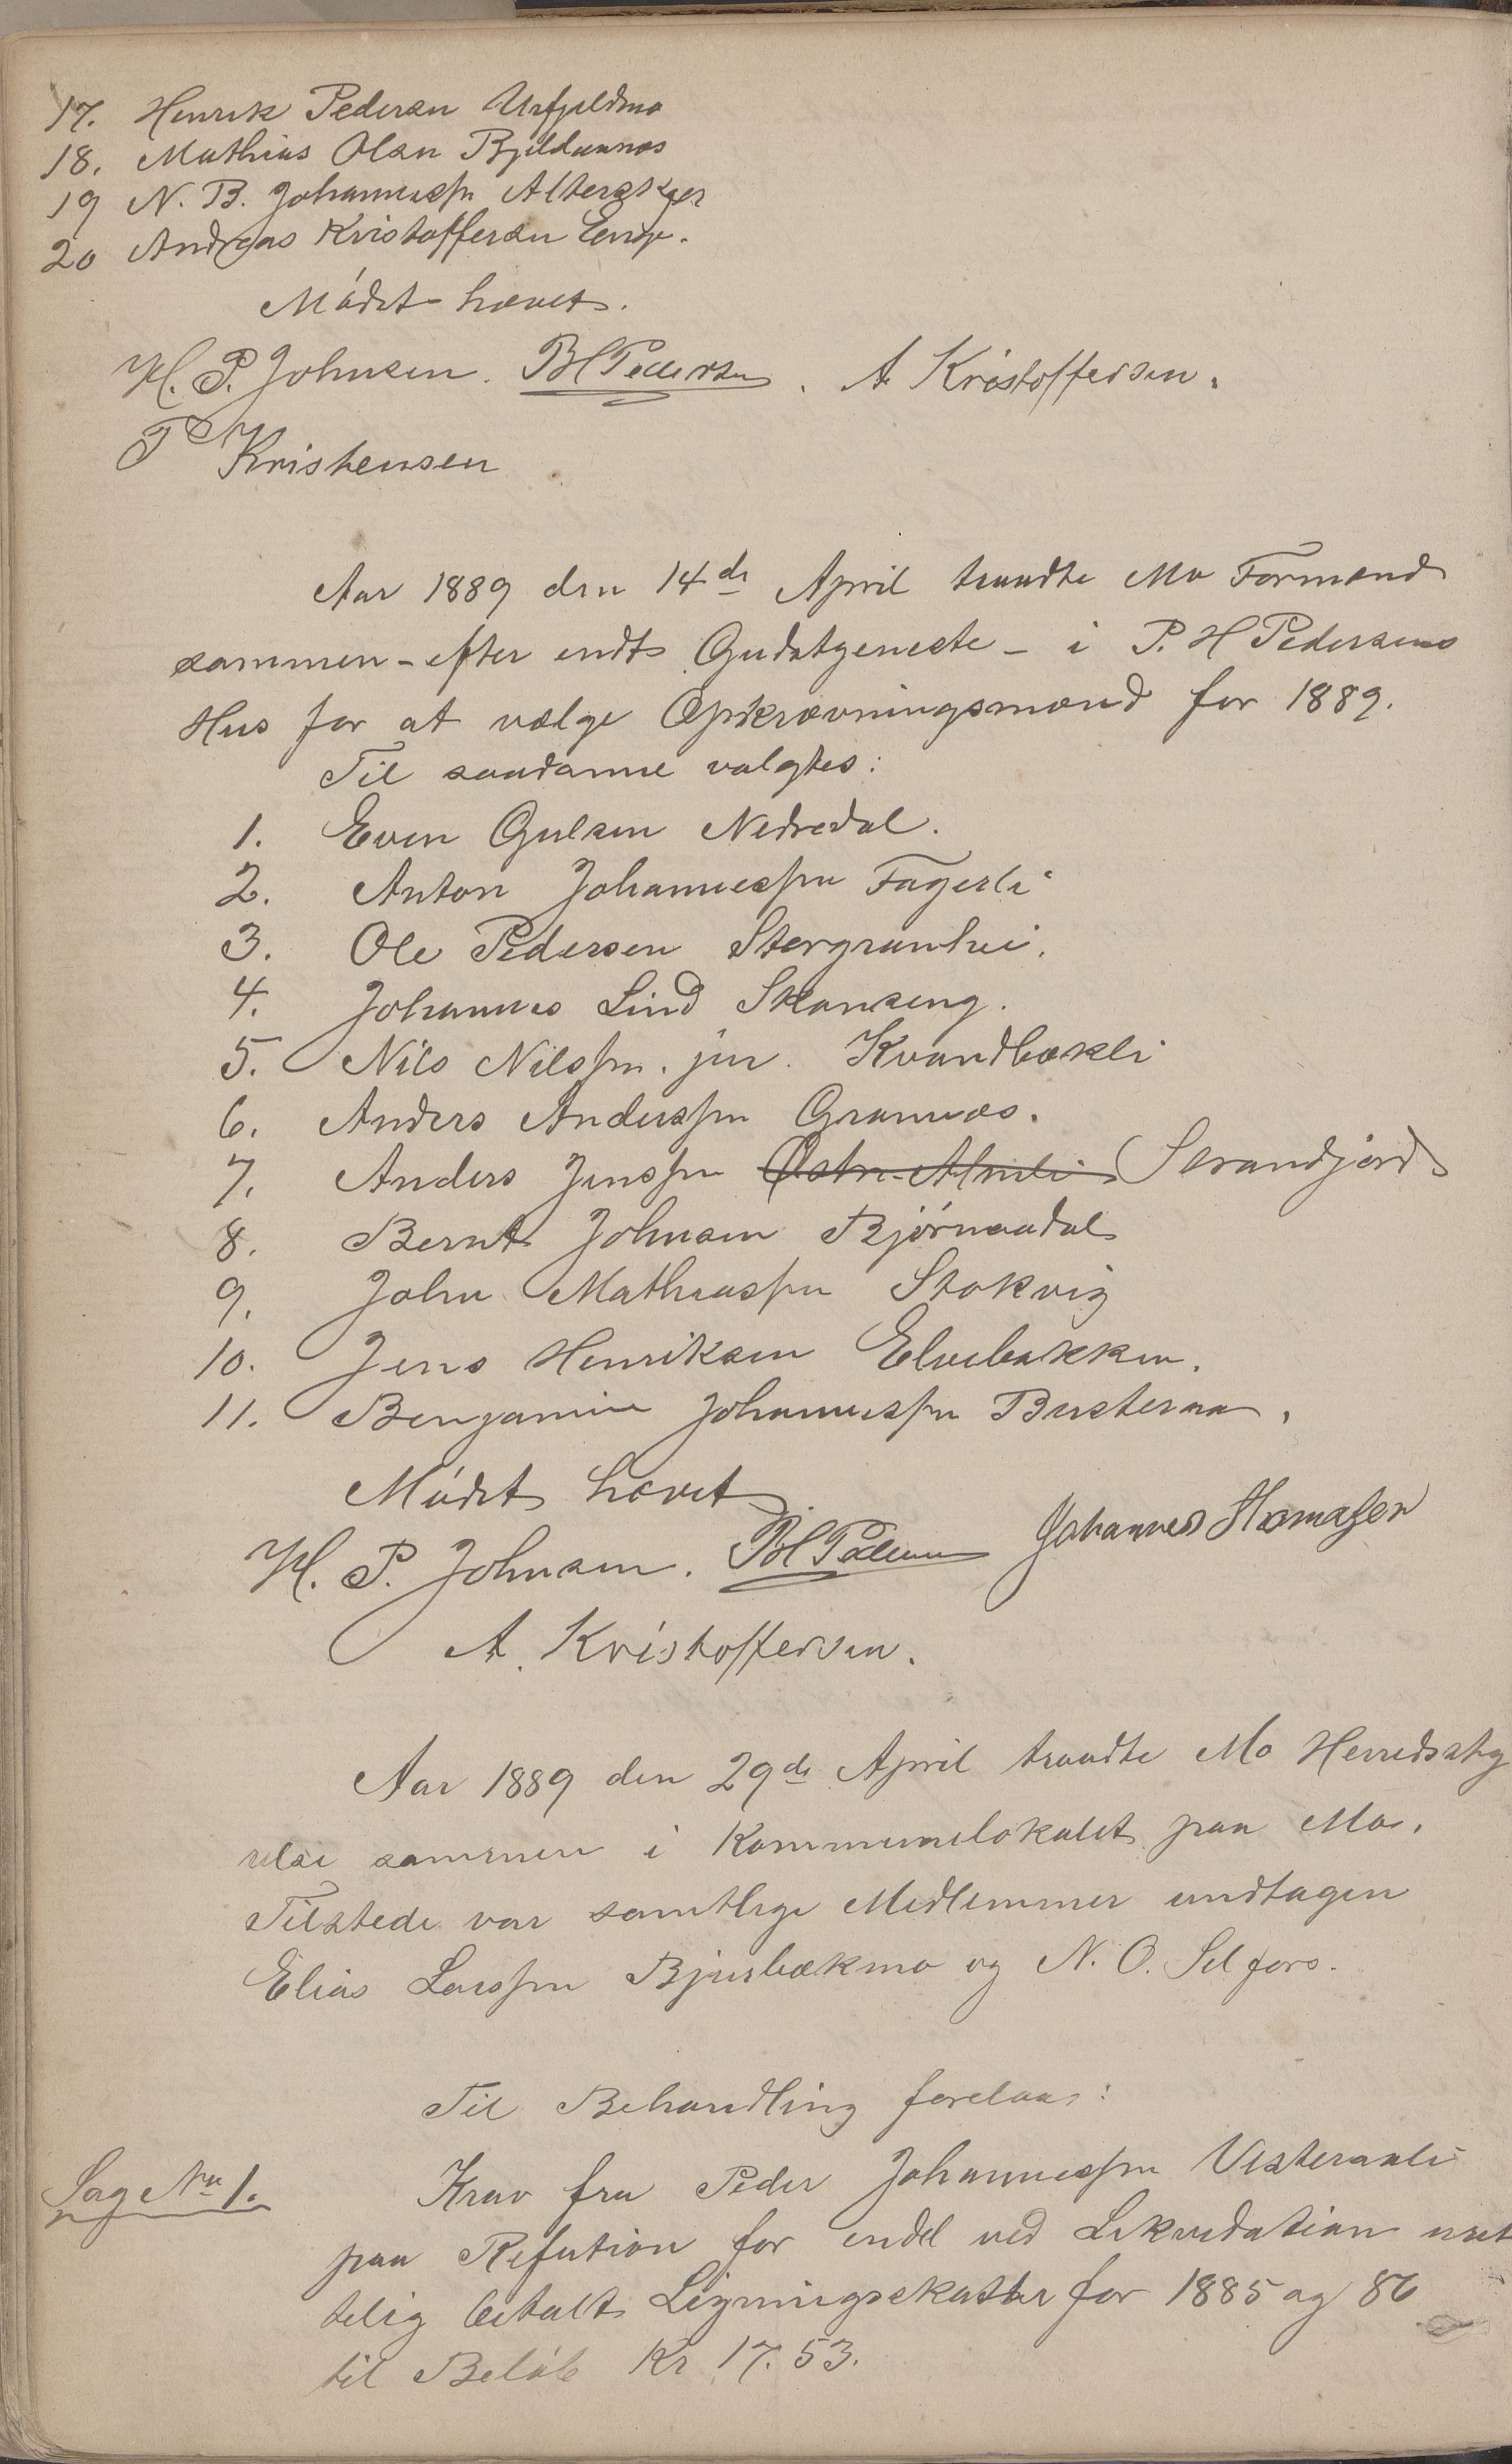 17. Henrik Pedersen Urfjeldmo
18. Mathias Olsen Bjeldaanæs
19 N. B. Johannessen Alterskjer
20 Andreas Kristoffersen Enge.
Mödet hævet.
H. P. Johnsen. PHPedersen. A Kristoffersen.
P Kristensen
Aar 1889 den 14de April traadte Mo Formænd
sammen - efter endt Gudstjeneste - i P. H Pedersens
Hus for at vælge Opkrævningsmænd for 1889.
Til saadanne valgtes:
1. Even Gulsen Nedredal.
2. Anton Johannessen Fagerli
3. Ole Pedersen Storgrønhei.
4. Johannes Lind Skonseng.
5. Nils Nilssen. jun. Kvandbækli
6. Anders Anderssen Grannæs.
7. Anders Jenssen Østre-Almli Strandjord
8. Bernt Johnsen Björnaadal
9. John Mathiassen Stokvig
10. Jens Henriksen Elvebakken.
11. Benjamin Johannessen Busteraa.
Mödet hævet
H. P. Johnsen. PHPedersen Johannes
A. Kristoffersen.
Aar 1889 den 29de April traadte Mo Herredssty
relse sammen i Kommunelokalet paa Mo.
Tilstede var samtlige Medlemmer undtagen
Elias Larssen Bjurbækmo og N. O. Selfors.
Til Behandling forelaa:
Sag No 1. Krav fra Peder Johannessen Vesteraali
paa Refution for endel ved Likvidation uret
telig betalt Ligningsskatter for 1885 og 86
til Belöb Kr 17.53.